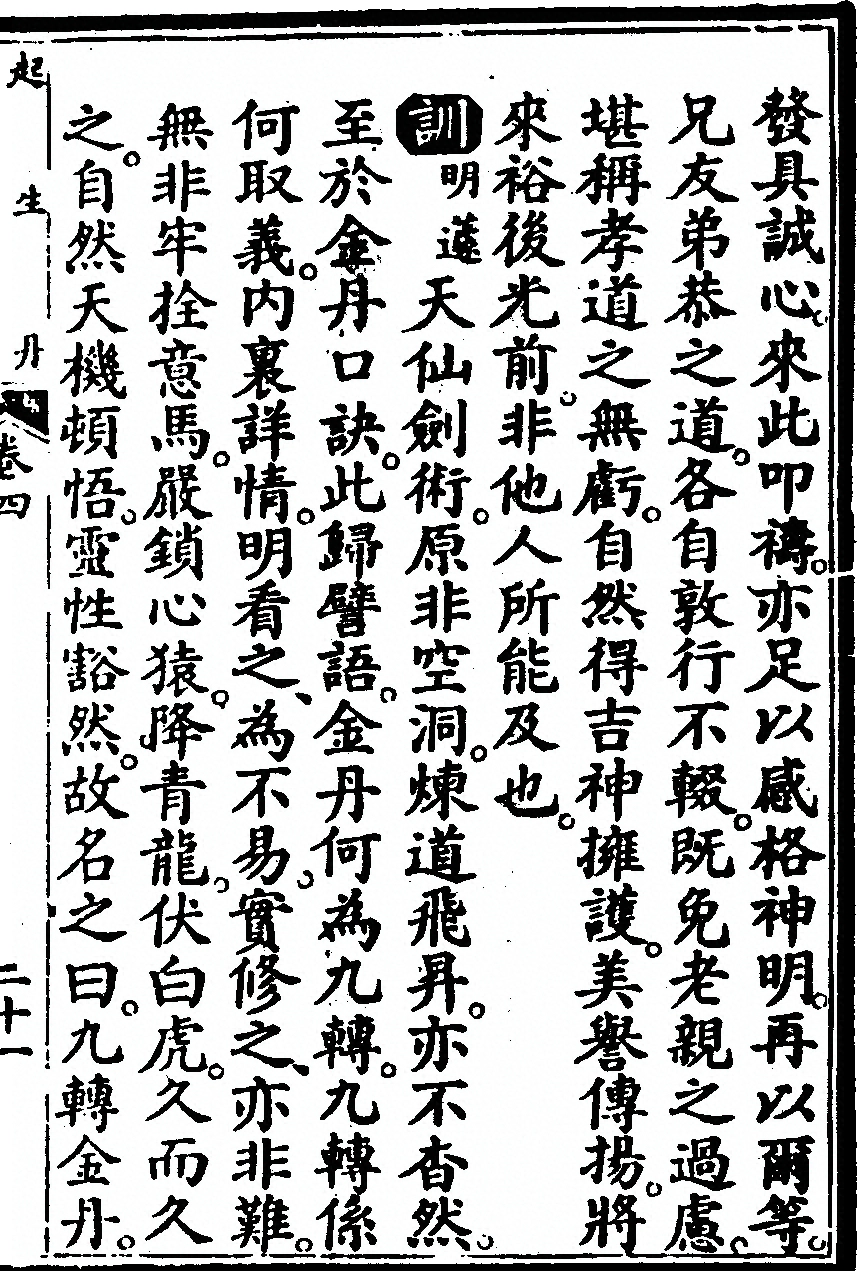 發具誠心。來此叩禱。亦足以感格神明。再以爾等。
兄友弟恭之道。各自敦行不輟。既免老親之過慮。
堪稱孝道之無虧。自然得吉神擁護。美譽傳揚。將
來裕後光前。非他人所能及也。
訓 明蓮 天仙劍術。原非空洞。煉道飛昇。亦不杳然。
至於金丹口訣。此歸譬語。金丹何為九轉。九轉係
何取義。内裏詳情。明看之、為不易。實修之、亦非難。
無非牢拴意馬。嚴鎖心猿。降青龍。伏白虎。久而久
之。自然天機頓悟。靈性豁然。故名之曰。九轉金丹。
起生丹 卷四 二十一